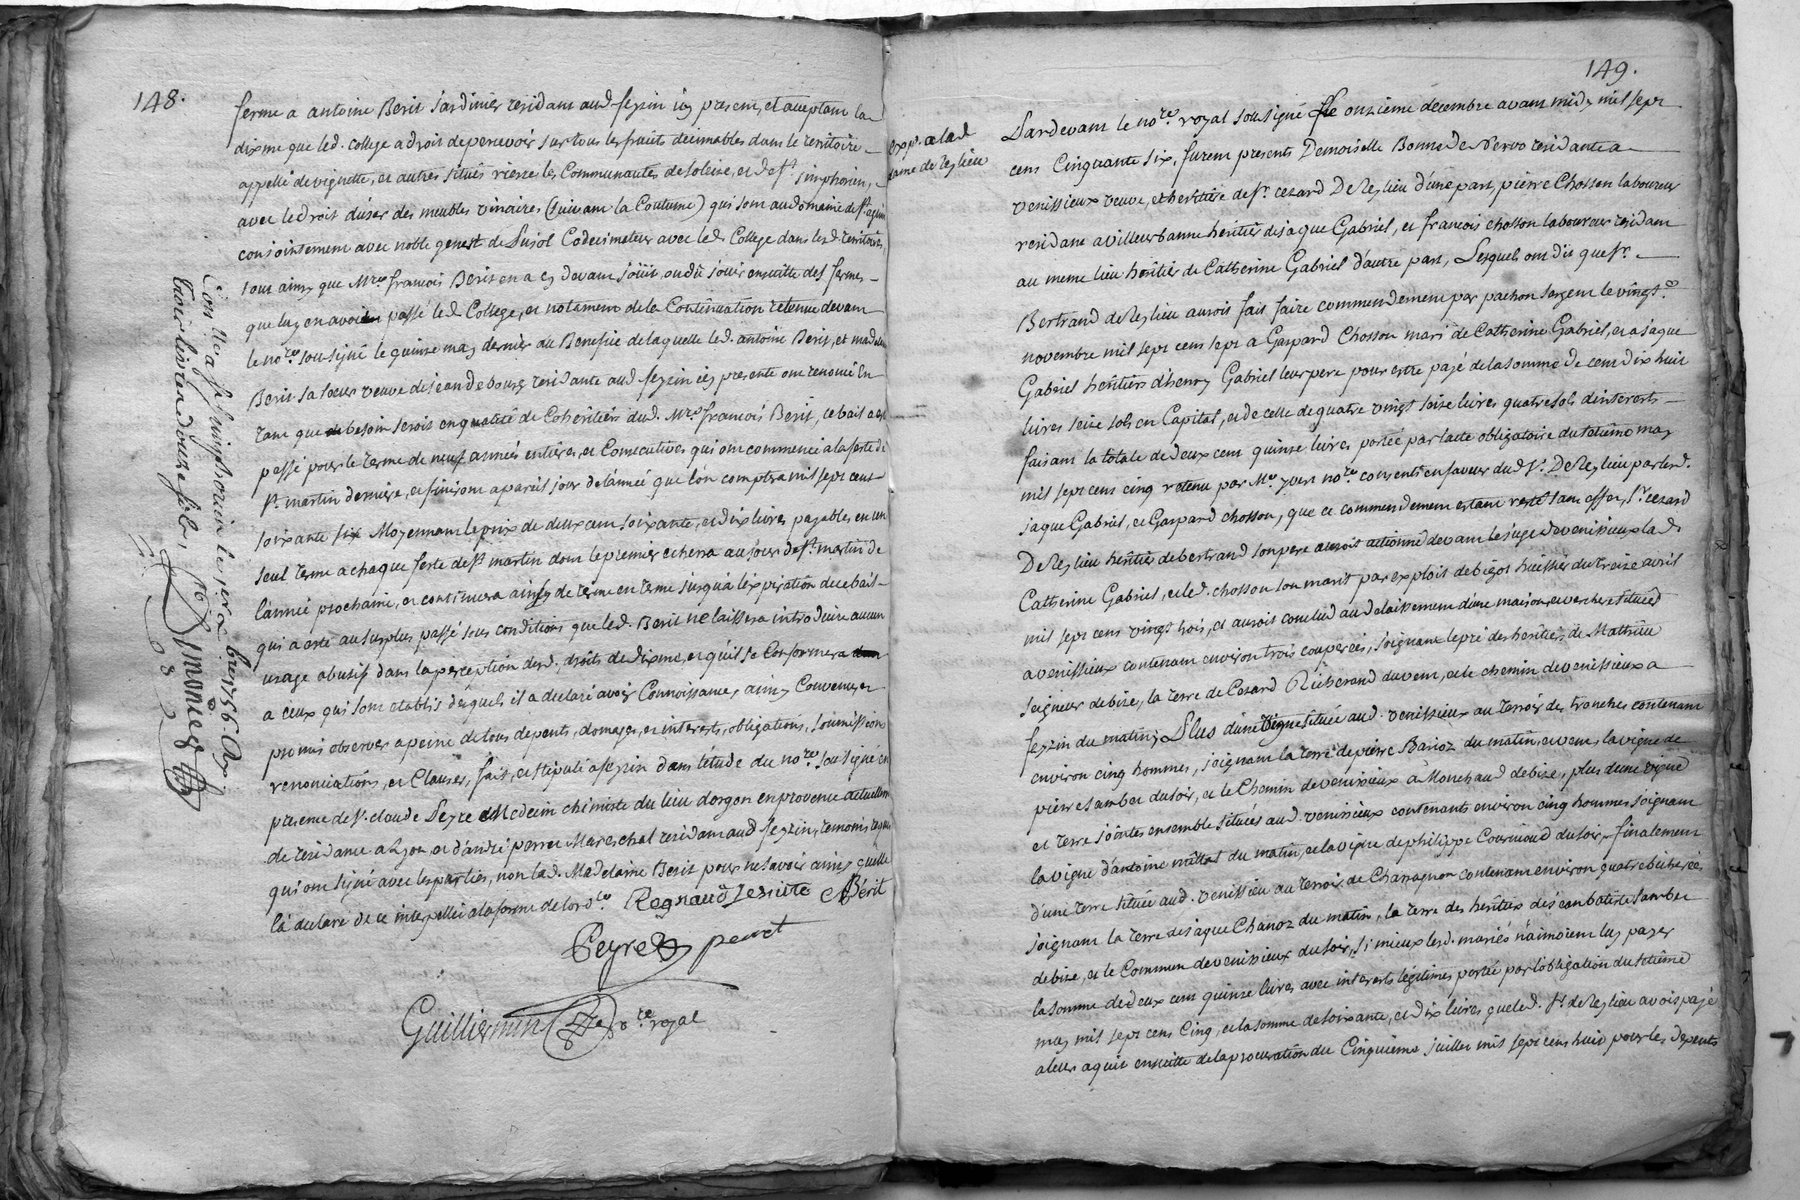 148.
ferme a antoine Berit Jardinier residant aud. feyzin icy present, et aceptant la
dixme que led. college a droit de percevoir sur tous les fruits decimables dans le territoire
appellé de vignette, et autres situés rierre les Communautés de soleize, et de St. simphorien,
avec le droit d'user des meubles vinaires (suivant la Coutume) qui sont au domaine de St.
conjointement avec noble genest de Pujol Codecimateur avec led. College dans lesd. territoires,
tout ainsy que Mre. francois Berit en a cy devant joüit, ou dû jouir ensuitte des fermes
que luy en avoient passé led. College, et notament de la Continuation retenue devant
le nore. soussigné le quinze may dernier au Benefice de laquelle led. antoine Berit, et madelaine
Berit sa soeur veuve de jean debourg residante aud. feyzin icy presente ont renoncé En
tant que besoin seroit en qualité de Coheritiers dud. Mre. francois Berit, ce bail a eté
passé pour le terme de neuf années entieres, et Consecutives qui ont commencé a la feste de
St. martin derniere, et finiront a pareil jour de l'année que l'on comptera mil sept cent
soixante six Moyennant le prix de deux cent soixante, et dix livres payables en un
seul terme a chaque feste de St. martin dont le premier echerra au jour de St. martin de
l'année prochaine, et continuera ainsy de terme en terme jusqu'a l'expiration de ce bail
qui a eté au surplus passé sous conditions que led. Berit ne laissera introduire aucun
usage abusif dans la perception desd. droits de dixme, et qu'il se Conformera
a ceux qui sont etablis desquels il a declaré avoir Connoissance, ainsy Convenu, et
promis observer a peine de tous depents, domages, et interests, obligations, soumissions
renonciations, et Clauses, fait, et stipulé a feyzin dans l'etude du nore. soussigné en
presence de Sr. claude Peyre Medecin chimiste du lieu d'orgon en provence actuellemt.
de residance a Lyon, et d'andré perret Mareschal residant aud. feyzin, temoins requis
qui ont signé avec les parties, non lad. Madelaine Berit pour ne savoir ainsy qu'elle
l'a declaré de ce interpellée a la forme de l'ordce.
Regnaud Jesuite ABérit
Peyre perret
Guilliermin nore. royal
Con. lle. a St. Simphorien le
bre. 1756. R.
trois livres douze sols,
Simonier
149.
expé. a lad.
dame de Reylieu
Pardevant le nore. royal soussigné Le onzieme decembre avant midy mil sept
cens Cinquante six, furent presents Demoiselle Bonne de Nervo residante a
venissieux veuve, et heritiere de Sr. cezard De Reylieu d'une part, pierre Chosson laboureur
residant a villeurbanne heritier de jaque Gabriel, et francois chosson laboureur residant
au meme lieu heritier de Catherine Gabriel d'autre part, Lesquels ont dit que Sr.
Bertrand de Reylieu auroit fait faire commendement par pachon sergent le vingt
novembre mil sept cens sept a Gaspard Chosson mari de Catherine Gabriel, et a jaque
Gabriel heritiers d'henry Gabriel leur pere pour estre payé de la somme de cent dix huit
livres seize sols en Capital, et de celle de quatre vingt seize livres quatre sols d'interests
faisant la totale de deux cent quinze livres portée par l'acte obligatoire du setieme may
mil sept cens cinq retenu par Me. yvert nore. consenti en faveur dud. Sr. De Reylieu par lesd.
jaque Gabriel, et Gaspard chosson, que ce commendement estant resté sans effet, Sr. cezard
De Reylieu heritier de bertrand son pere auroit actionné devant le juge de venissieux lad.
Catherine Gabriel, et led. chosson son marit par exploit de bigot huissier du treize avril
mil sept cens vingt trois, et auroit conclud au delaissement d'une maison, et verchere située
a venissieux contenant environ trois couperées, joignant le pré des heritiers de Mathieu
seigneur de bize, la terre de Cezard Richerand du vent, et le chemin de venissieux a
feyzin du matin; Plus d'une vigne située aud. venissieux au terroir des tranches contenant
environ cinq hommes, joignant la terre de pierre Banoz du matin, et vent, la vigne de
pierre Sambet du soir, et le Chemin de venissieux a Monchaud de bize, plus d'une vigne
et terre jointes ensemble situées aud. venissieux contenants environ cinq hommes joignant
la vigne d'antoine millot du matin, et la vigne de philippe Cournoud du soir, finalement
d'une terre située aud. venissieu au terroir de Charragnon contenant environ quatre bicherées
joignant la terre de jaque Chanoz du matin, la terre des heritiers de jean batiste Sambet
de bize, et le Commun de venissieux du soir, si mieux lesd. mariés n'aimoient luy payer
la somme de deux cent quinze livres avec interests legitimes portée par l'obligation du setieme
may mil sept cens Cinq, et la somme de soixante, et dix livres que led. Sr. de Reylieu avoit payé
a leur aquit ensuitte de la procuration du Cinquieme juillet mil sept cens huit pour les depents